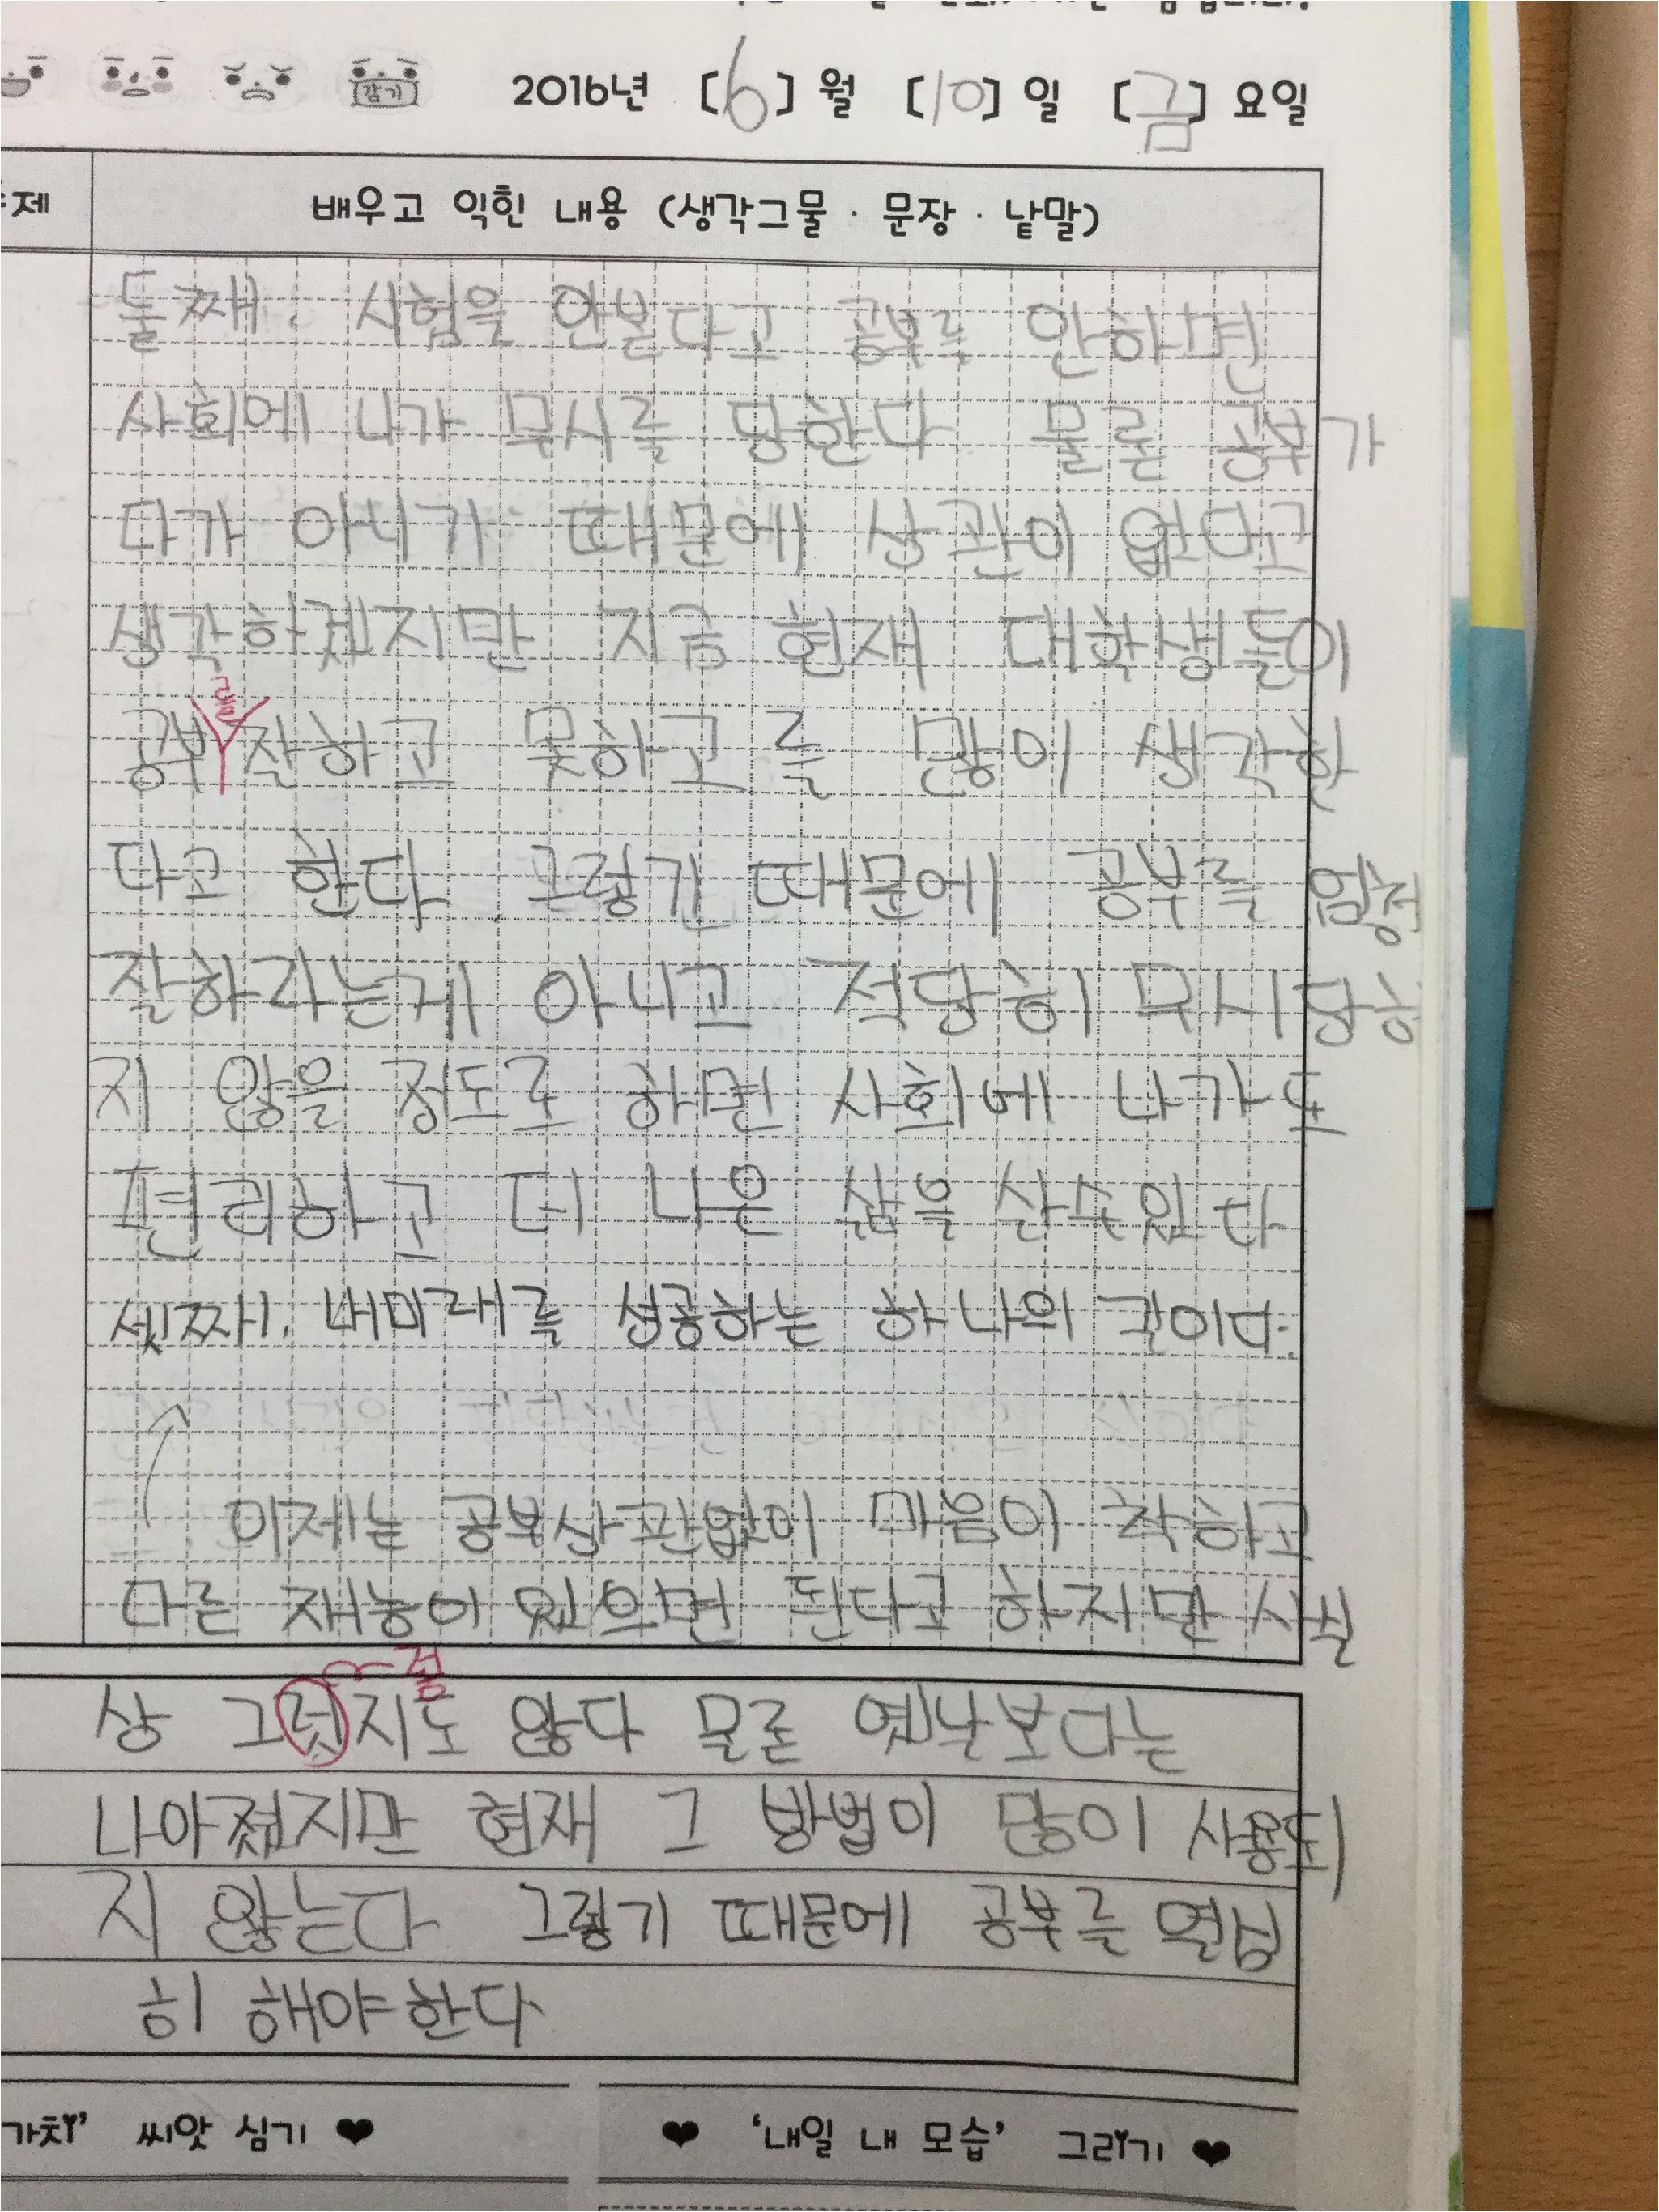 감기
2016년 [6]월 [10]일 [금]요일
배우고 익힌 내용 (생각그물 · 문장 · 낱말)
둘째. 시험을 안본다고 공부를 안하면
사회에 나가 무시를 당한다 물론 공부가
다가 아니기 때문에 상관이 없다고
생각하겠지만 지금 현재 대학생들이
를
공부 잘하고 못하고를 많이 생각한
다고 한다. 그렇기 때문에 공부를 엄청
잘하라는게 아니고 적당히 무시당하
지 않을 정도로 하면 사회에 나가도
편리하고 더 나은 삶을 산수있다
셋째. 내미래를 성공하는 하나의 길이다.
이제는 공부상관없이 마음이 착하고
다른 재능이 있으면 된다고 하지만 사실
렇
상 그럿지도 않다 물론 옛날보다는
나아졌지만 현재 그 방법이 많이 사용되
지 않는다 그렇기 때문에 공부를 열심
히 해야한다
씨앗 심기 ♥
♥ ‘내일 내 모습’ 그리기 ♥